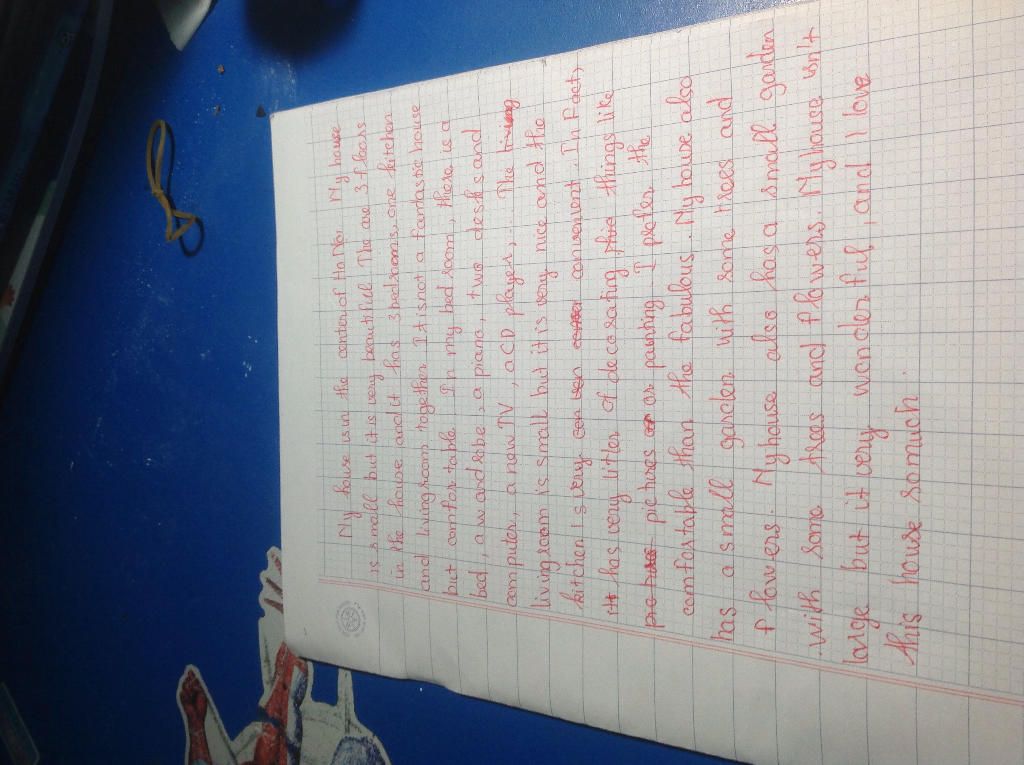 My house is in the center of Ha Noi. My house
is small but it is very beautiful. The are 3 floors
in the house and it has 3 bedrooms, one kitchen
and living room together. It is not a fantastic house
but comfortable. In my bed room, there is a
bed, a wadrobe, a piano, two desks and
computer, a new TV, a CD player,... The living
living room is small but it is very nice and the
kitchen is very convenient. In Fact,
it has very litter of decorating this things like
pictures or painting. I prefer the
comfortable than the fabulous. My house also
has a small garden with some trees and
flowers. My house also has a small garden
with some trees and flowers. My house isn't
large but it very wonderful, and I love
this house so much.